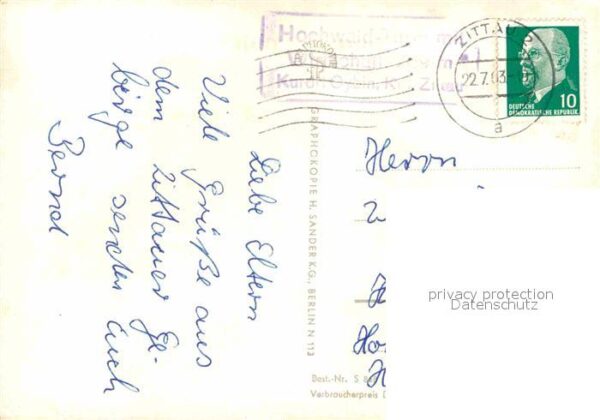 Hochwald
Kurort Oybin, Kr. Zittau
ZITTAU 2
22.7.63
a
DEUTSCHE
DEMOKRATISCHE REPUBLIK
10
Liebe Eltern
Viele Grüße aus
dem Zittauer Ge-
birge sendet Euch
Bernd
GRAPHOKOPIE H. SANDER K.G., BERLIN N 113
Best.-Nr. S
Verbraucherpreis
Herrn
privacy protection
Datenschutz